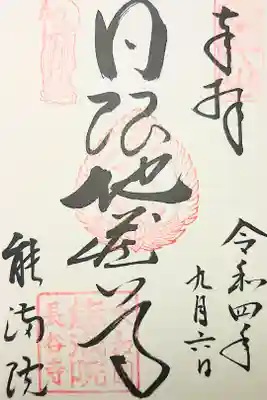 奉拝
令和四年
九月六日
日限地蔵尊
能満院
長谷寺
能満院